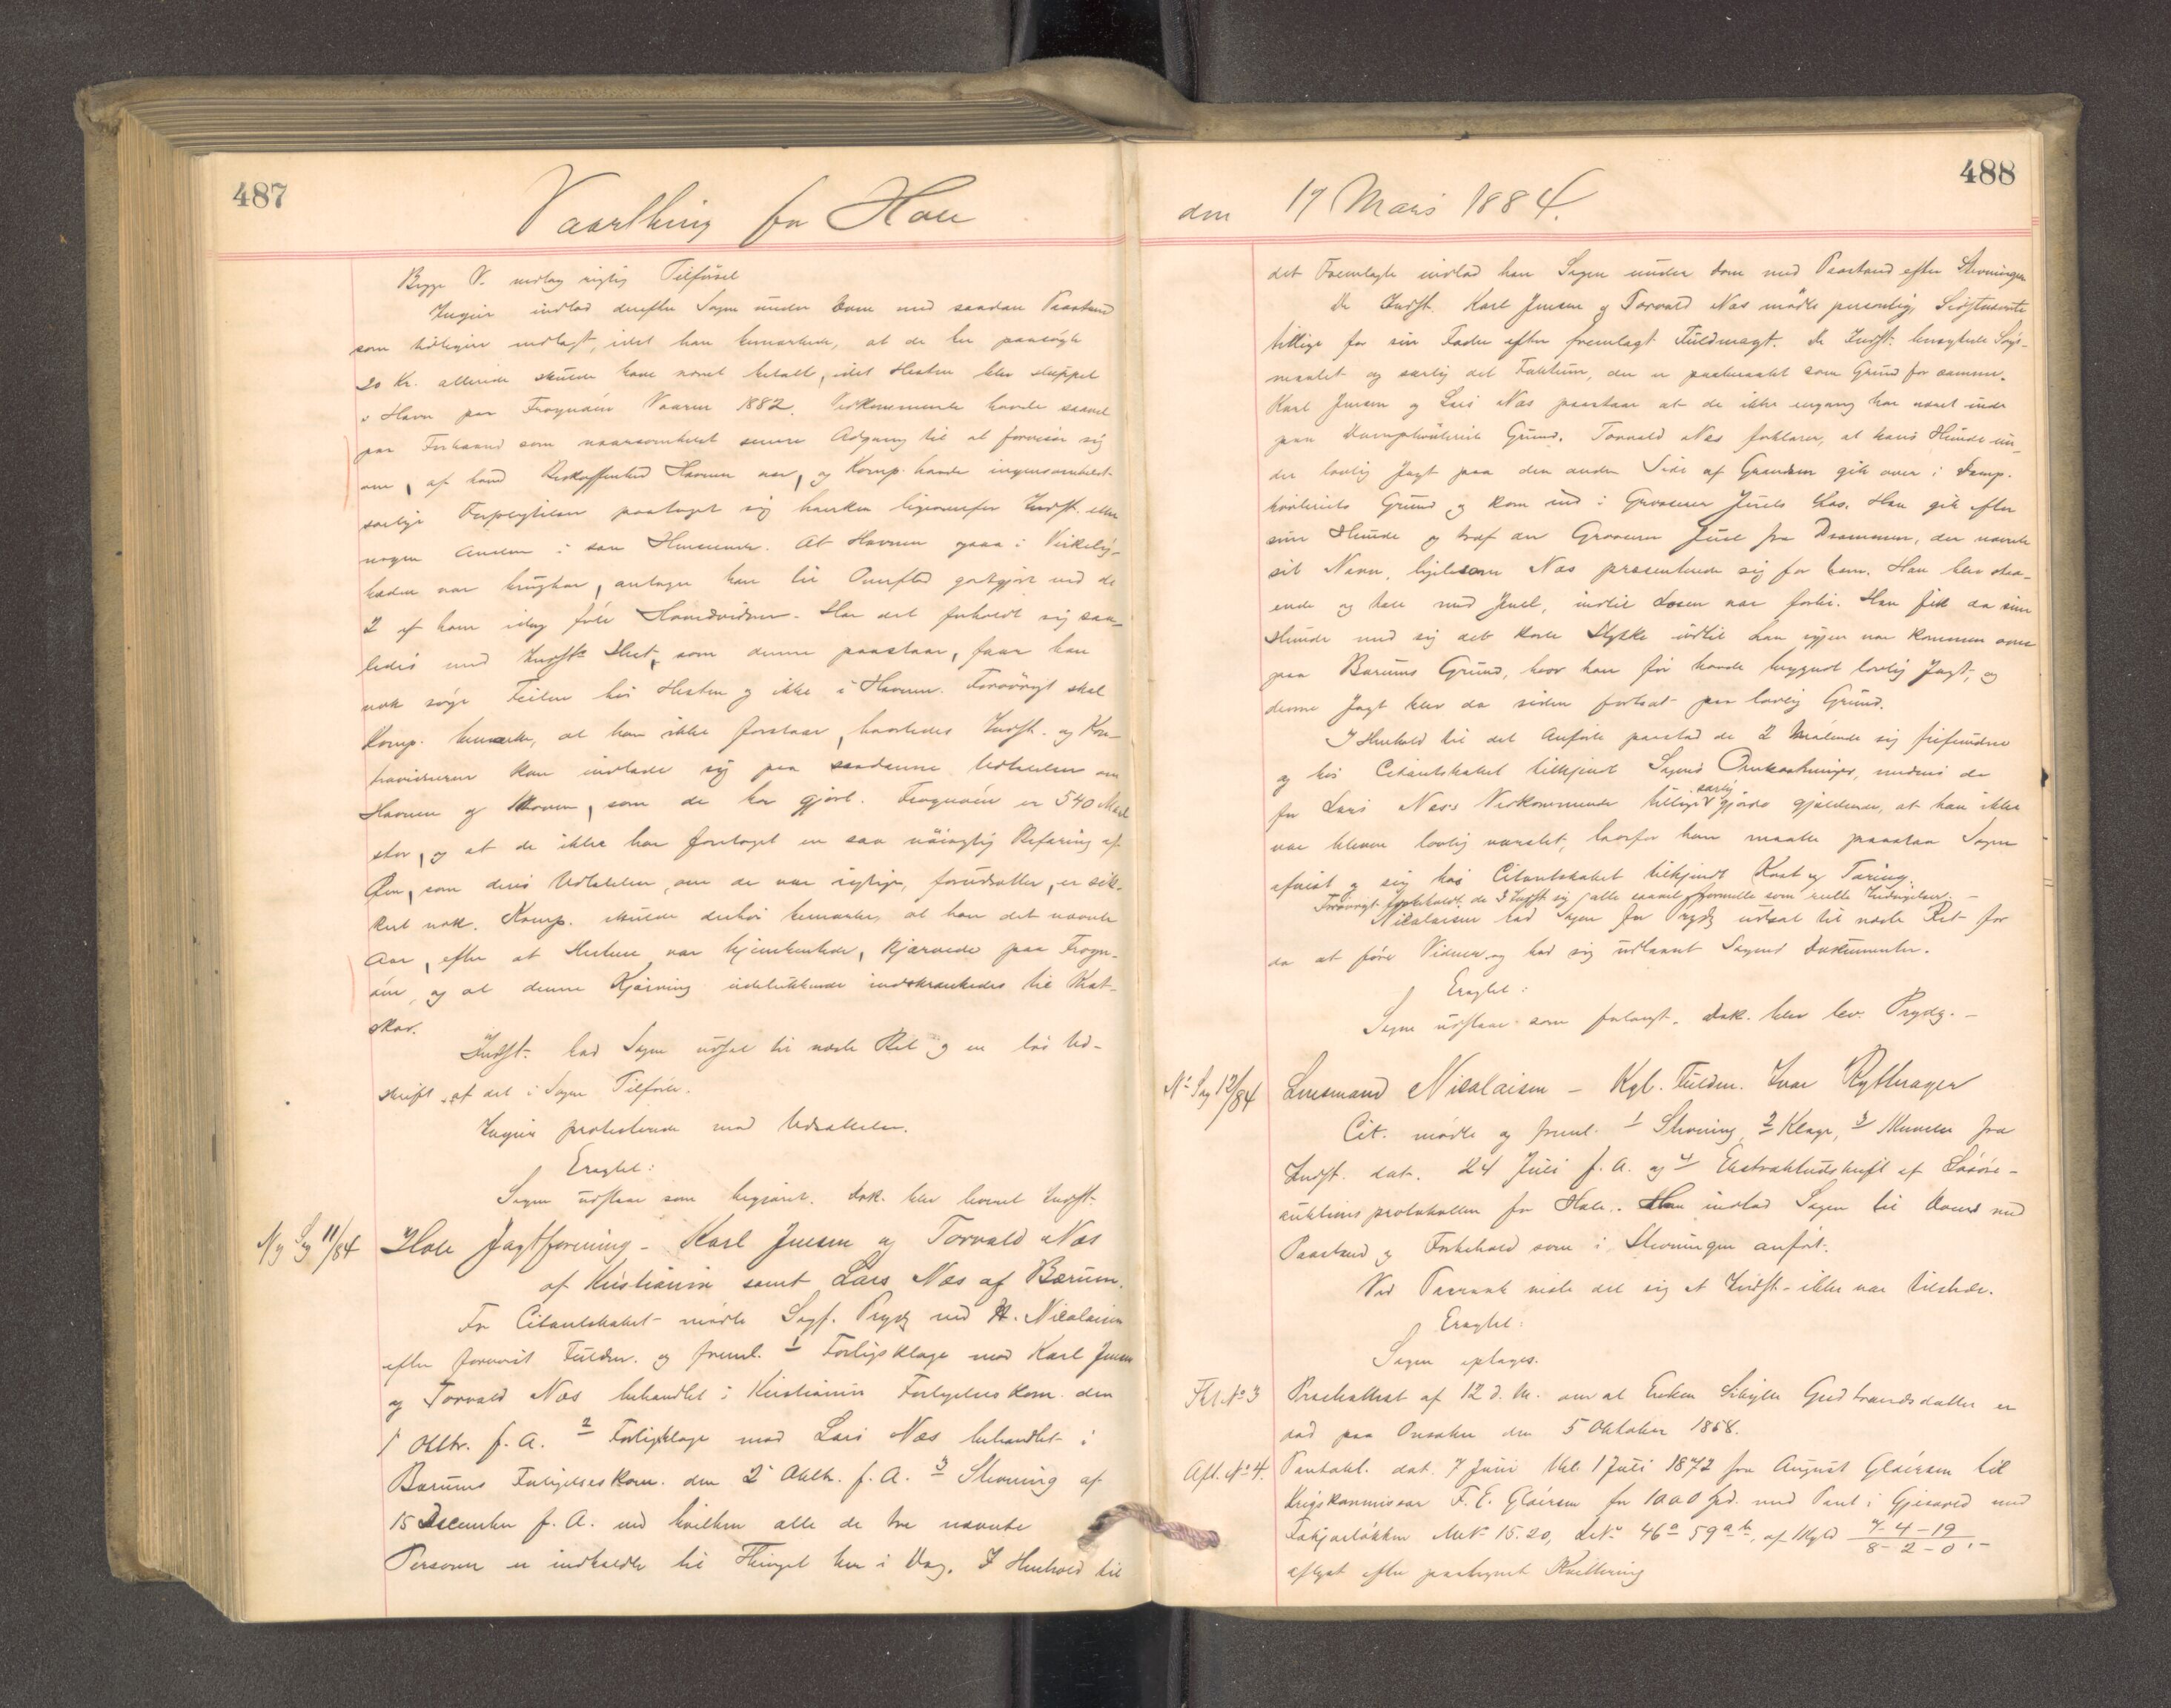 487
Vaarthing for Hole
Begge V. vedtog rigtig Tilførsel
Ingier indlod derefter Sagen under Dom med saadan Paastand
som tidligere nedlagt, idet han bemærkede, at de her paasøgte
20 Kr. allerede skulde have været betalt, idet Hesten blev sluppet
i Havn paa Frognøen Vaaren 1882. Vedkommende havde saavel
paa Forhaand som naarsomhelst senere Adgang til at forvisse sig
om, af hvad Beskaffenhed Havnen var, og Komp. havde ingensomhelst
særlige Forpligtelser paataget sig hverken ligeoverfor Indst. eller
nogen Anden i saa Henseende. At Havnen ogsaa i Virkelig-
heden var brugbar, antager han til Overflod godtgjort ved de
2 af ham idag førte Hovedvidner. Har det forholdt sig saa-
ledes med Indst's Hest, som denne paastaar, faar han
nok søge Feilen hos Hesten og ikke i Havnen. Forøvrigt skal
Komp. bemærke, at han ikke forstaar, hvorledes Indst. og Kon-
travidnerne kan indlade sig paa saadanne Udtalelser om
Havnen og Skoven, som de har gjort. Frognøen er 540 Maal
stor, og at de ikke har foretaget en saa nøiagtig Befaring af
Øen, som deres Udtalelser, om de var rigtige, forudsætter, er sik-
kert nok. Komp. skulde derhos bemærke, at han det nævnte
Aar, efter at Hestene var hjemhentede, kjærvede paa Frogn-
øen, og at denne Kjærving udelukkende indskrænkedes til Krat-
skov.
Indst. bad Sagen udsat til næste Ret og en løs Ud-
skrift af det i Sagen Tilførte.
Ingier protesterede mod Udsættelsen.
Eragtet:
Sagen udstaar som begjæret. Dok. blev leveret Indst.
Ny Sag 11/84
Hole Jagtforening - Karl Jensen og Torvald Næs
af Kristiania samt Lars Næs af Bærum.
For Citantskabet mødte Sagf. Prydz ved H. Nicolaisen
efter forevist Fuldm. og freml. 1 Forligsklage mod Karl Jensen
og Torvald Næs behandlet i Kristiania Forligelseskom. den
1 Oktbr. f. A. 2 Forligsklage mod Lars Næs behandlet i
Bærums Forligelseskom. den 2 Oktb. f. A. 3 Stevning af
15 December f. A. ved hvilken alle de tre nævnte
Personer er indkaldte til Thinget her i Dag. I Henhold til
488
den 17 Marts 1884.
det Fremlagte indlod han Sagen under Dom med Paastand efter Stevningen
De Indst. Karl Jensen og Torvald Næs mødte personlig, Sidstnævnte
tillige for sin Fader efter fremlagt Fuldmagt. De Indst. benægtede Søgs-
maalet og særlig det Faktum, der er paaberaabt som Grund for samme.
Karl Jensen og Lars Næs paastaar at de ikke engang har været inde
paa Grund. Torvald Næs forklarer, at hans Hunde un-
der lovlig Jagt paa den anden Side af Grændsen gik over i
Grund og kom ind i Grosserer Juels Los. Han gik efter
sine Hunde og traf da Grosserer Juel fra Drammen, der nævnte
sit Navn, ligesom Næs præsenterede sig for ham. Han blev staa-
ende og tale med Juel, indtil Losen var forbi. Han fik da sine
Hunde med sig det korte Stykke indtil han igjen var kommen over
paa Bærums Grund, hvor han før havde begyndt lovlig Jagt, og
denne Jagt blev da siden fortsat paa lovlig Grund.
I Henhold til det Anførte paastod de 2 Mødende sig frifundne
og hos Citantskabet tilkjendt Sagens Omkostninger, medens de
for Lars Næs's Vedkommende tillige særlig gjorde gjældende, at han ikke
var bleven lovlig varslet, hvorfor han maatte paastaa Sagen
afvist og sig hos Citantskabet tilkjendt Kost og Tæring.
Forøvrigt forbeholdt de 3 Indst. sig alle saavel formelle som reelle Indsigelser. -
Nicolaisen bad Sagen for Prydz udsat til næste Ret for
da at føre Vidner og bad sig udlaant Sagens Dokumenter.
Eragtet:
Sagen udstaar som forlangt. Dok. blev lev. Prydz. -
Ny Sag 12/84
Lensmand Nicolaisen - Kgl. Fuldm. Ivar Rytterager
Cit. mødte og freml. 1 Stevning, 2 Klage, 3 Skrivelse fra
Indst. dat. 24 Juli f. A. og 4 Ekstraktudskrift af Løsøre-
auktionsprotokollen for Hole. Han indlod Sagen til Doms med
Paastand og Forbehold som i Stevningen anført.
Ved Paaraab viste det sig at Indst. ikke var tilstede.
Eragtet:
Sagen optages.
Tkl. No 3
Præsteattest af 12 d. M. om at Enken Sibylle Gudbrandsdatter er
død paa Onsaker den 5 Oktober 1868.
Afl. No 4.
Pantobl. dat. 7 Juni thl. 1 Juli 1872 fra August Gløersen til
Krigskommissær F. E. Gløersen for 1000 Spd. med Pant i Gjesvold med
Løkken Mt No 15. 20, L No 46a 59ab, af Skyld 7-4-19
8-2-0. -
aflyst efter paategnet Kvittering